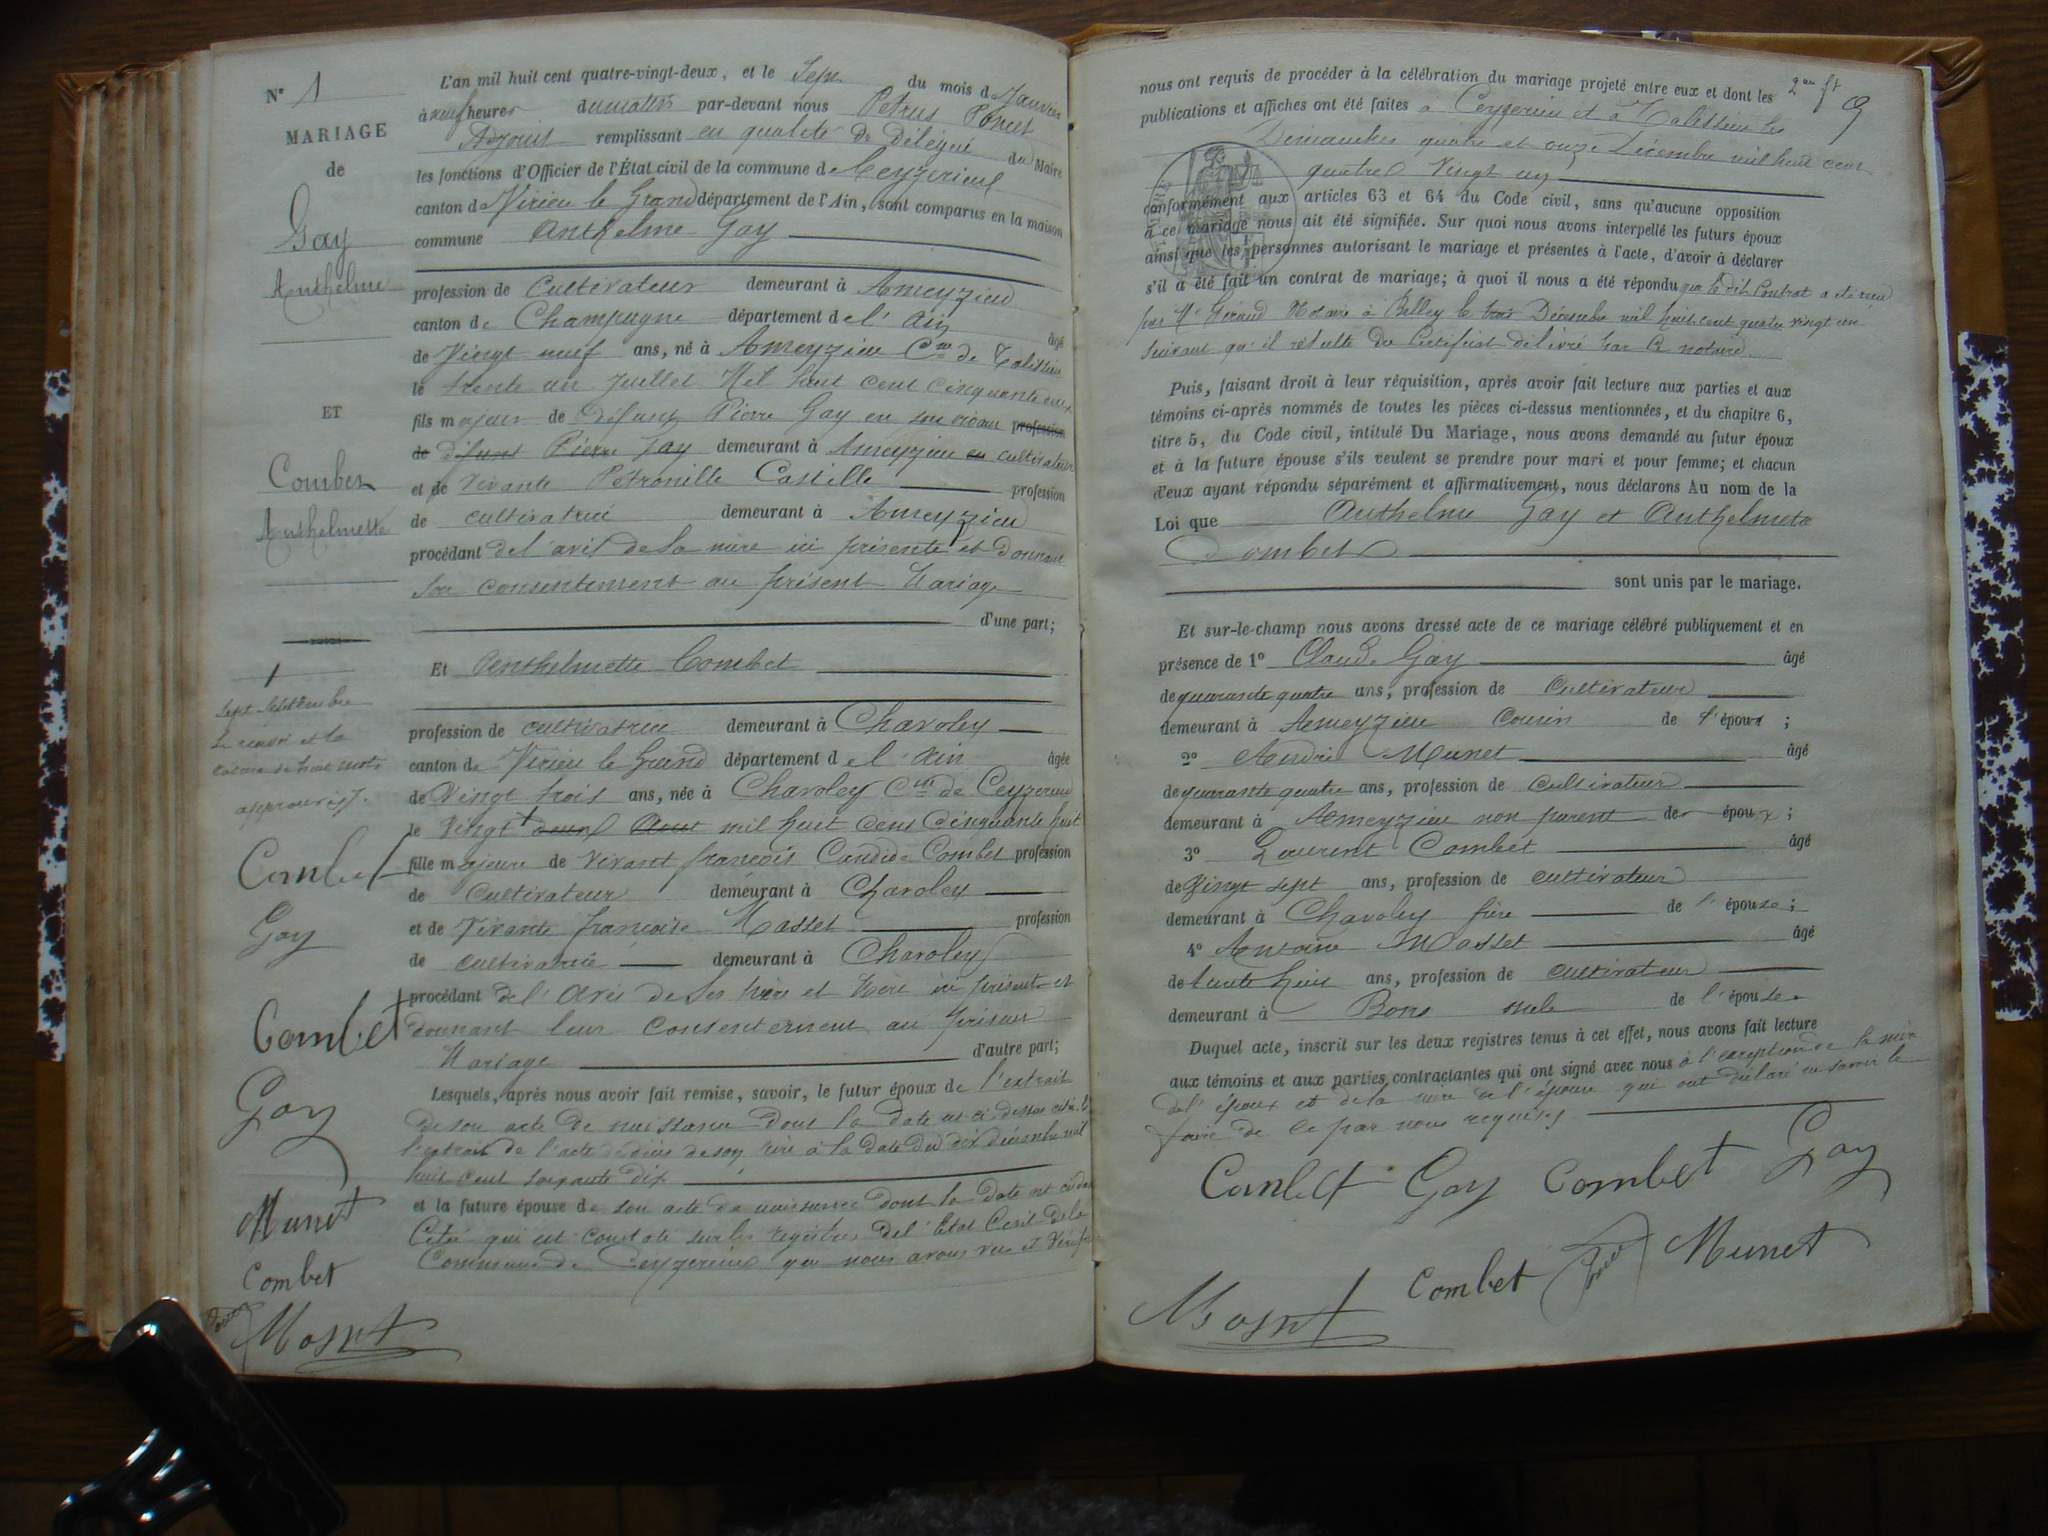 N° 1
MARIAGE
de
Gay
Anthelme
ET
Combet
Anthelmette
1
Sept Septembre
Le renvoi et la
rature de huit mots
approuvés.
Combet
Gay
Combet
Gay
Munet
Combet
Mosset
L'an mil huit cent quatre-vingt-deux, et le Sept du mois de Janvier
à neuf heures du matin par-devant nous Petrus Poncet
Adjoint remplissant en qualité de Délégué du Maire
les fonctions d'Officier de l'État civil de la commune de Ceyzerieu
canton de Virieu le Grand département de l'Ain, sont comparus en la maison
commune Anthelme Gay
profession de Cultivateur demeurant à Ameyzieu
canton de Champagne département de l'Ain âgé
de Vingt neuf ans, né à Ameyzieu Cne de Talissieu
le trente un Juillet Mil huit cent cinquante deux
fils majeur de défunt Pierre Gay en son vivant profession
de défunt Pierre Gay demeurant à Ameyzieu en cultivateur
et de Vivante Pétronille Castille profession
de cultivatrice demeurant à Ameyzieu
procédant de l'avis de sa mère ici présente et donnant
son consentement au présent Mariage
d'une part;
Et Anthelmette Combet
profession de cultivatrice demeurant à Chavoley
canton de Virieu le Grand département de l'Ain âgée
de Vingt trois ans, née à Chavoley Cne de Ceyzerieu
le Vingt Aout mil huit cent cinquante huit
fille majeure de vivant françois Candide Combet profession
de Cultivateur demeurant à Chavoley
et de Vivante françoise Masset profession
de cultivatrice demeurant à Chavoley
procédant de l'avis de ses père et mère ici présents et
donnant leur consentement au présent
Mariage d'autre part;
Lesquels, après nous avoir fait remise, savoir, le futur époux de l'extrait
de son acte de naissance dont la date est ci dessus citée, &
l'extrait de l'acte de décès de son père à la date du dix décembre mil
huit cent soixante dix
et la future épouse de son acte de naissance dont la date est ci dessus
Citée qui est constaté sur les registres de l'Etat Civil de la
Commune de Ceyzerieu que nous avons vus et vérifiés
2eme ft
9
nous ont requis de procéder à la célébration du mariage projeté entre eux et dont les
publications et affiches ont été faites à Ceyzerieu et à Talissieu les
Dimanches quatre et onze Décembre mil huit cent
quatre Vingt un
conformément aux articles 63 et 64 du Code civil, sans qu'aucune opposition
à ce mariage nous ait été signifiée. Sur quoi nous avons interpellé les futurs époux
ainsi que les personnes autorisant le mariage et présentes à l'acte, d'avoir à déclarer
s'il a été fait un contrat de mariage; à quoi il nous a été répondu que le dit Contrat a été reçu
par Me Giraud Notaire à Belley le trois Décembre mil huit cent quatre vingt un
suivant qu'il résulte du Certificat délivré par ce notaire.
Puis, faisant droit à leur réquisition, après avoir fait lecture aux parties et aux
témoins ci-après nommés de toutes les pièces ci-dessus mentionnées, et du chapitre 6,
titre 5, du Code civil, intitulé Du Mariage, nous avons demandé au futur époux
et à la future épouse s'ils veulent se prendre pour mari et pour femme; et chacun
d'eux ayant répondu séparément et affirmativement, nous déclarons Au nom de la
Loi que Anthelme Gay et Anthelmette
Combet
sont unis par le mariage.
Et sur-le-champ nous avons dressé acte de ce mariage célébré publiquement et en
présence de 1° Claude Gay âgé
de quarante quatre ans, profession de Cultivateur
demeurant à Ameyzieu Cousin de l'époux;
2° André Munet âgé
de quarante quatre ans, profession de cultivateur
demeurant à Ameyzieu non parent de époux;
3° Laurent Combet âgé
de Vingt sept ans, profession de cultivateur
demeurant à Chavoley frère de l'épouse;
4° Antoine Mosset âgé
de trente huit ans, profession de cultivateur
demeurant à Bons oncle de l'épouse.
Duquel acte, inscrit sur les deux registres tenus à cet effet, nous avons fait lecture
aux témoins et aux parties contractantes qui ont signé avec nous à l'exception de la mère
de l'époux et de la mère de l'épouse qui ont déclaré ne savoir le
faire de ce par nous requises
Combet Gay Combet Gay
Mosset Combet Poncet Munet